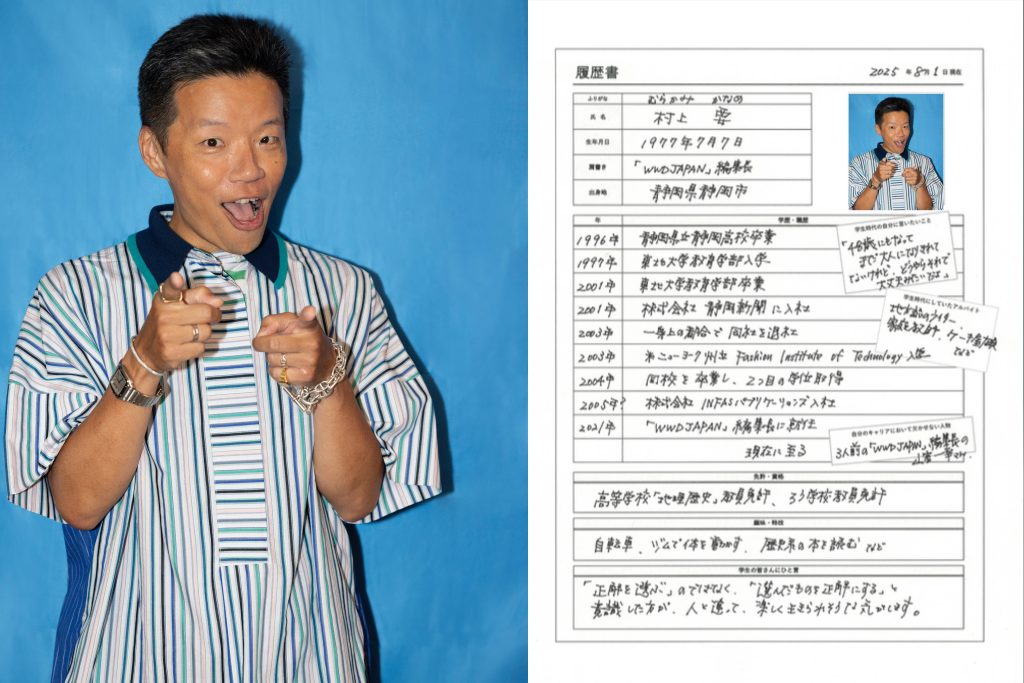 履歴書
2025 年 8月 1 日現在
ふりがな むらかみ かなめ
氏 名 村上 要
生年月日 1977年7月7日
肩書き 「WWDJAPAN」編集長
出身地 静岡県静岡市
年 学歴・職歴
1996年 静岡県立静岡高校卒業
1997年 東北大学教育学部入学
2001年 東北大学教育学部卒業
2001年 株式会社 静岡新聞に入社
2003年 一身上の都合で 同社を退社
2003年 米ニューヨーク州立 Fashion Institute of Technology 入学
2004年 同校を卒業し、2つ目の学位取得
2005年? 株式会社 INFASパブリケーションズ入社
2021年 「WWDJAPAN」編集長に就任
現在に至る
学生時代の自分に言いたいこと
「48歳にもなって
まだ大人になりきれて
ないけれど、どうやらそれで
大丈夫みたいだよ」
学生時代にしていたアルバイト
地方誌のライター
家庭教師、ケーキ屋
など
自分のキャリアにおいて欠かせない人物
3人前の「WWDJAPAN」編集長の
山室一幸さん
免許・資格
高等学校「地理歴史」教員免許、ろう学校教員免許
趣味・特技
自転車、ジムで体を動かす、歴史系の本を読む など
学生の皆さんにひと言
「正解を選ぶ」のではなく、「選んだものを正解にする」と
意識した方が、人と違って、楽しく生きられそうな気がします。